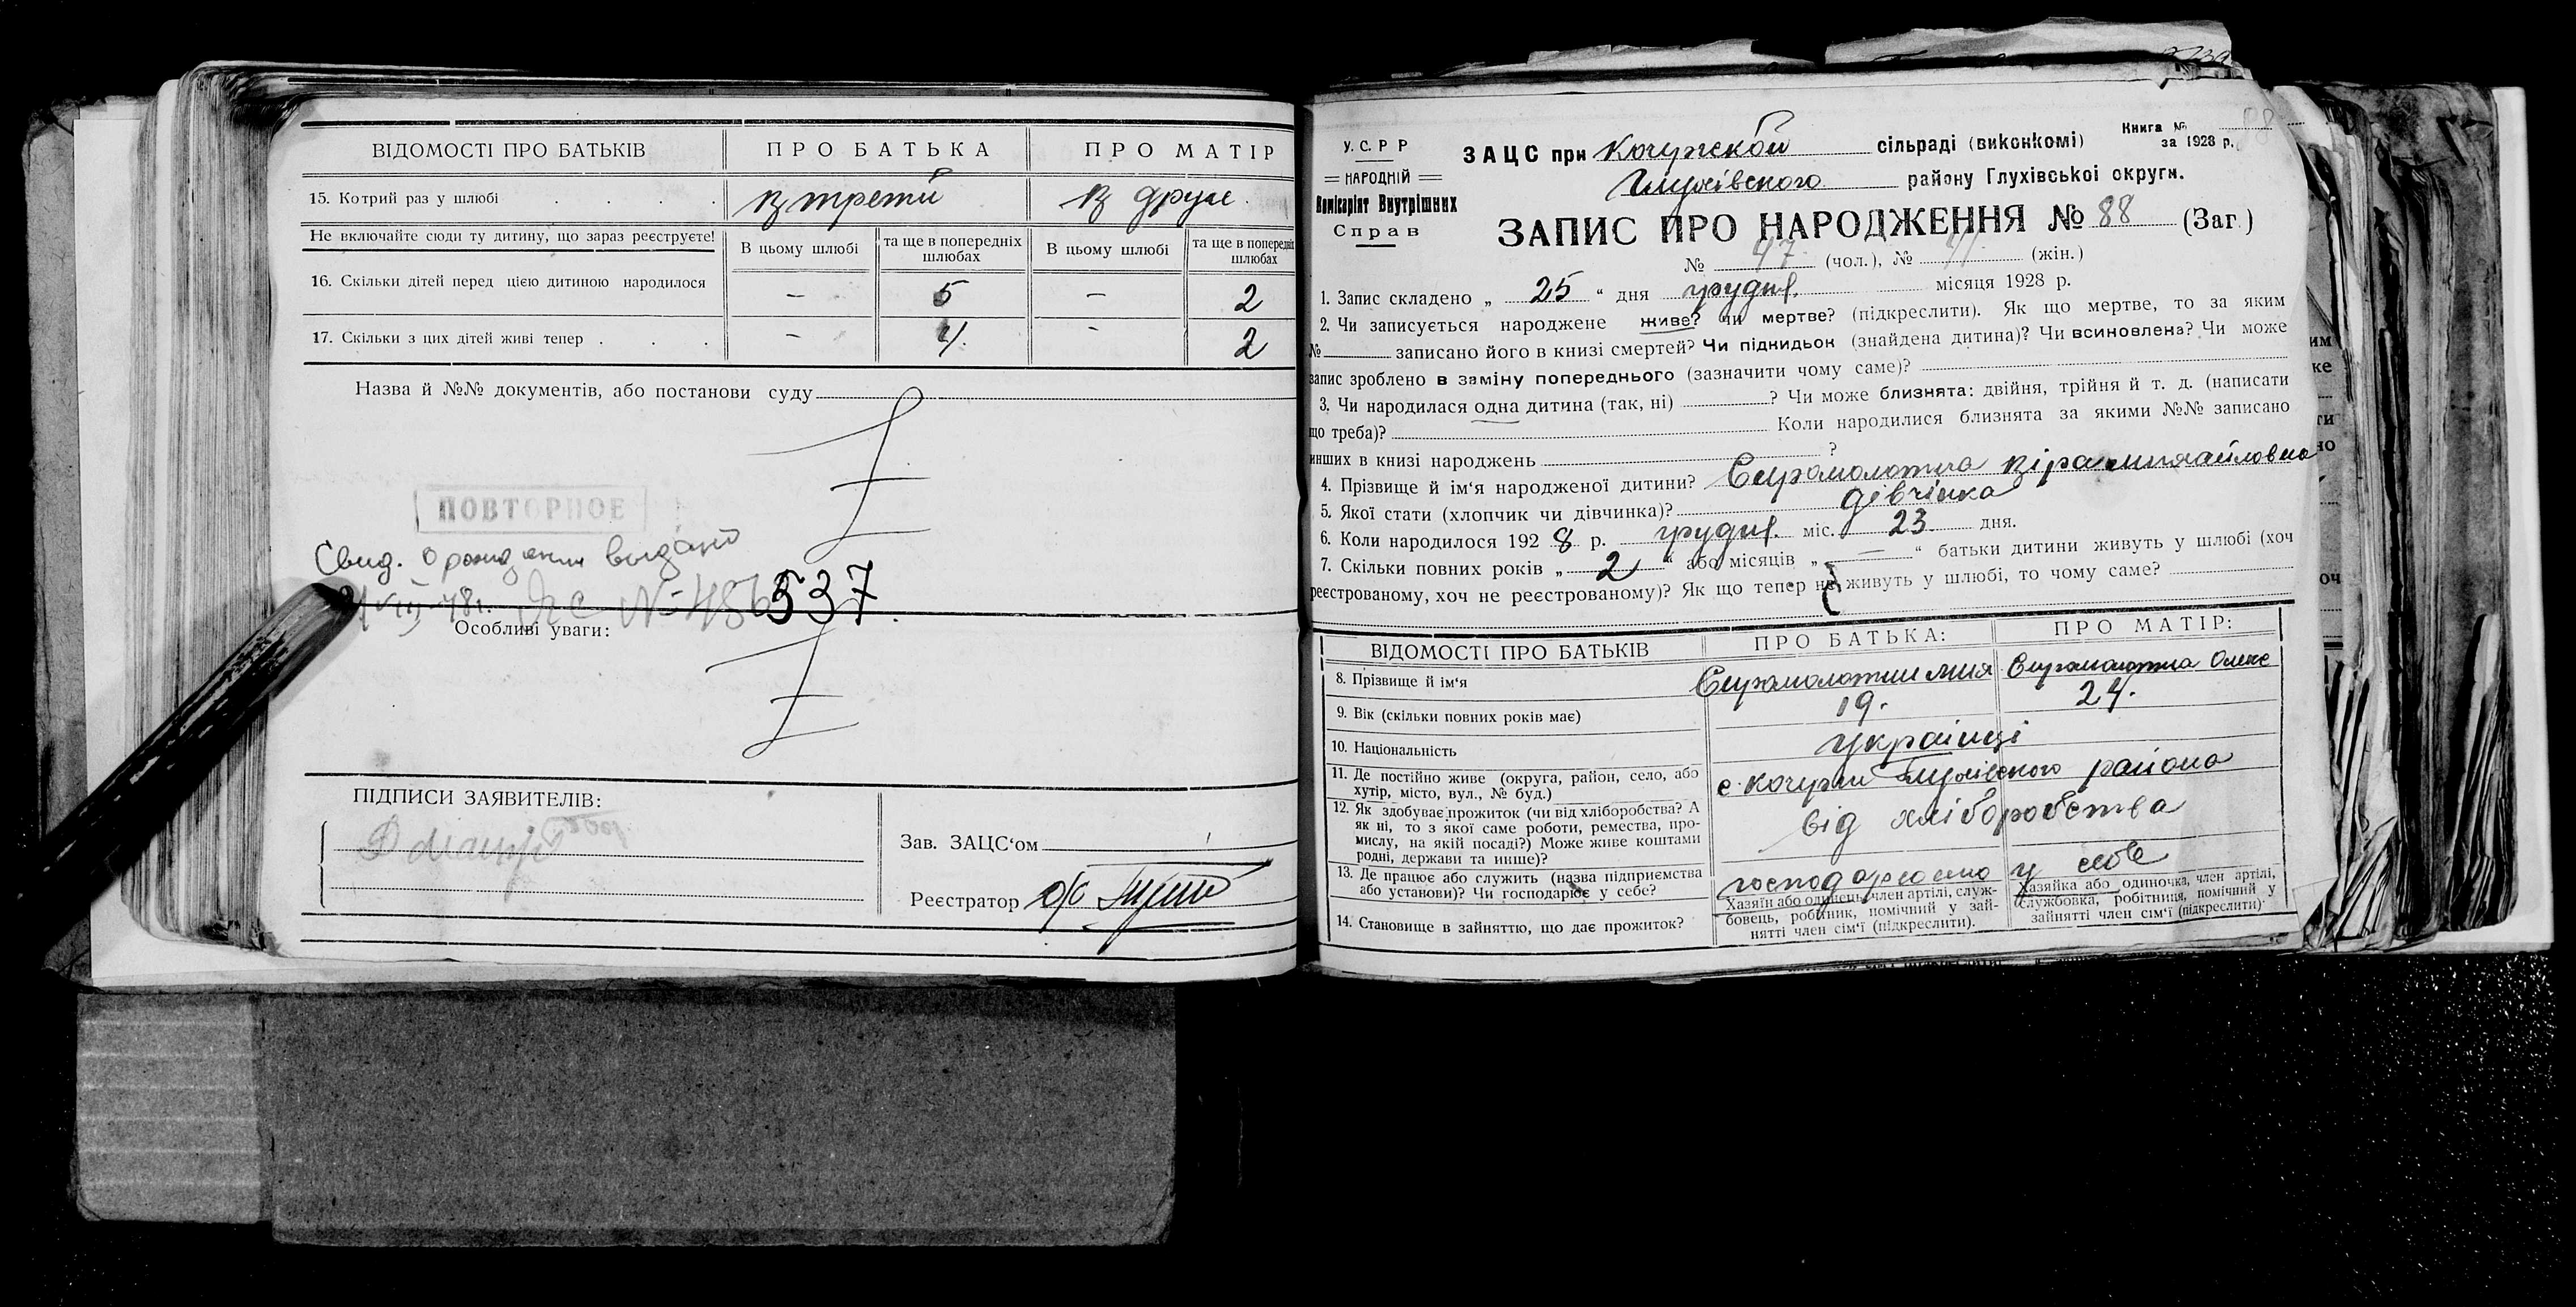 ВІДОМОСТІ ПРО БАТЬКІВ ПРО БАТЬКА ПРО МАТІР
15. Котрий раз у шлюбі в третій в друге
Не включайте сюди ту дитину, що зараз реєструєте! В цьому шлюбі та ще в попередніх шлюбах В цьому шлюбі та ще в попередніх шлюбах
16. Скільки дітей перед цією дитиною народилося – 5 – 2
17. Скільки з цих дітей живі тепер – 4. – 2
Назва й №№ документів, або постанови суду
ПОВТОРНОЕ
Свид. о рожден выдано
VIII 48г. № 456537
Особливі уваги:
ПІДПИСИ ЗАЯВИТЕЛІВ:
Зав. ЗАЦС‘ом
Реєстратор
У.С.Р.Р
НАРОДНІЙ
Комісаріят Внутрішніх
Справ
Книга №
за 1928 р.
ЗАЦС при сільраді (виконкомі)
Глухівского району Глухівської округи.
ЗАПИС ПРО НАРОДЖЕННЯ № 88 (Заг.)
№ 47 (чол.), № 41 (жін.)
1. Запис складено „ 25 “ дня грудня місяця 1928 р.
2. Чи записується народжене живе? чи мертве? (підкреслити). Як що мертве, то за яким
№ записано його в книзі смертей? Чи підкидьок (знайдена дитина)? Чи всиновлена? Чи може
запис зроблено в заміну попереднього (зазначити чому саме)?
3. Чи народилася одна дитина (так, ні) ? Чи може близнята: двійня, трійня й т. д. (написати
що треба)? Коли народилися близнята за якими №№ записано
инших в книзі народжень ?
4. Прізвище й ім‘я народженої дитини? Сыромолотна Віра Михайловна
5. Якої стати (хлопчик чи дівчинка)? дівчінка
6. Коли народилося 1928 р. грудня міс. 23 дня.
7. Скільки повних років „ 2 “ або місяців „ — “ батьки дитини живуть у шлюбі (хоч
реєстрованому, хоч не реєстрованому)? Як що тепер не живуть у шлюбі, то чому саме?
ВІДОМОСТІ ПРО БАТЬКІВ ПРО БАТЬКА: ПРО МАТІР:
8. Прізвище й ім‘я Сыромолотна Олекс
9. Вік (скільки повних років має) 19. 24.
10. Національність українці
11. Де постійно живе (округа, район, село, або
хутір, місто, вул., № буд.) Глухівского района
12. Як здобуває прожиток (чи від хліборобства? А
як ні, то з якої саме роботи, ремества, про-
мислу, на якій посаді?) Може живе коштами
родні, держави та инше)? від хліборобства
13. Де працює або служить (назва підприємства
або установи)? Чи господарює у себе? у себе
14. Становище в зайняттю, що дає прожиток?
Хазяїн або одинець, член артілі, служ-
бовець, робітник, помічний у зай-
нятті член сім‘ї (підкреслити).
Хазяйка або одиночка, член артілі,
службовка, робітниця, помічний у
зайнятті член сім‘ї (підкреслити).